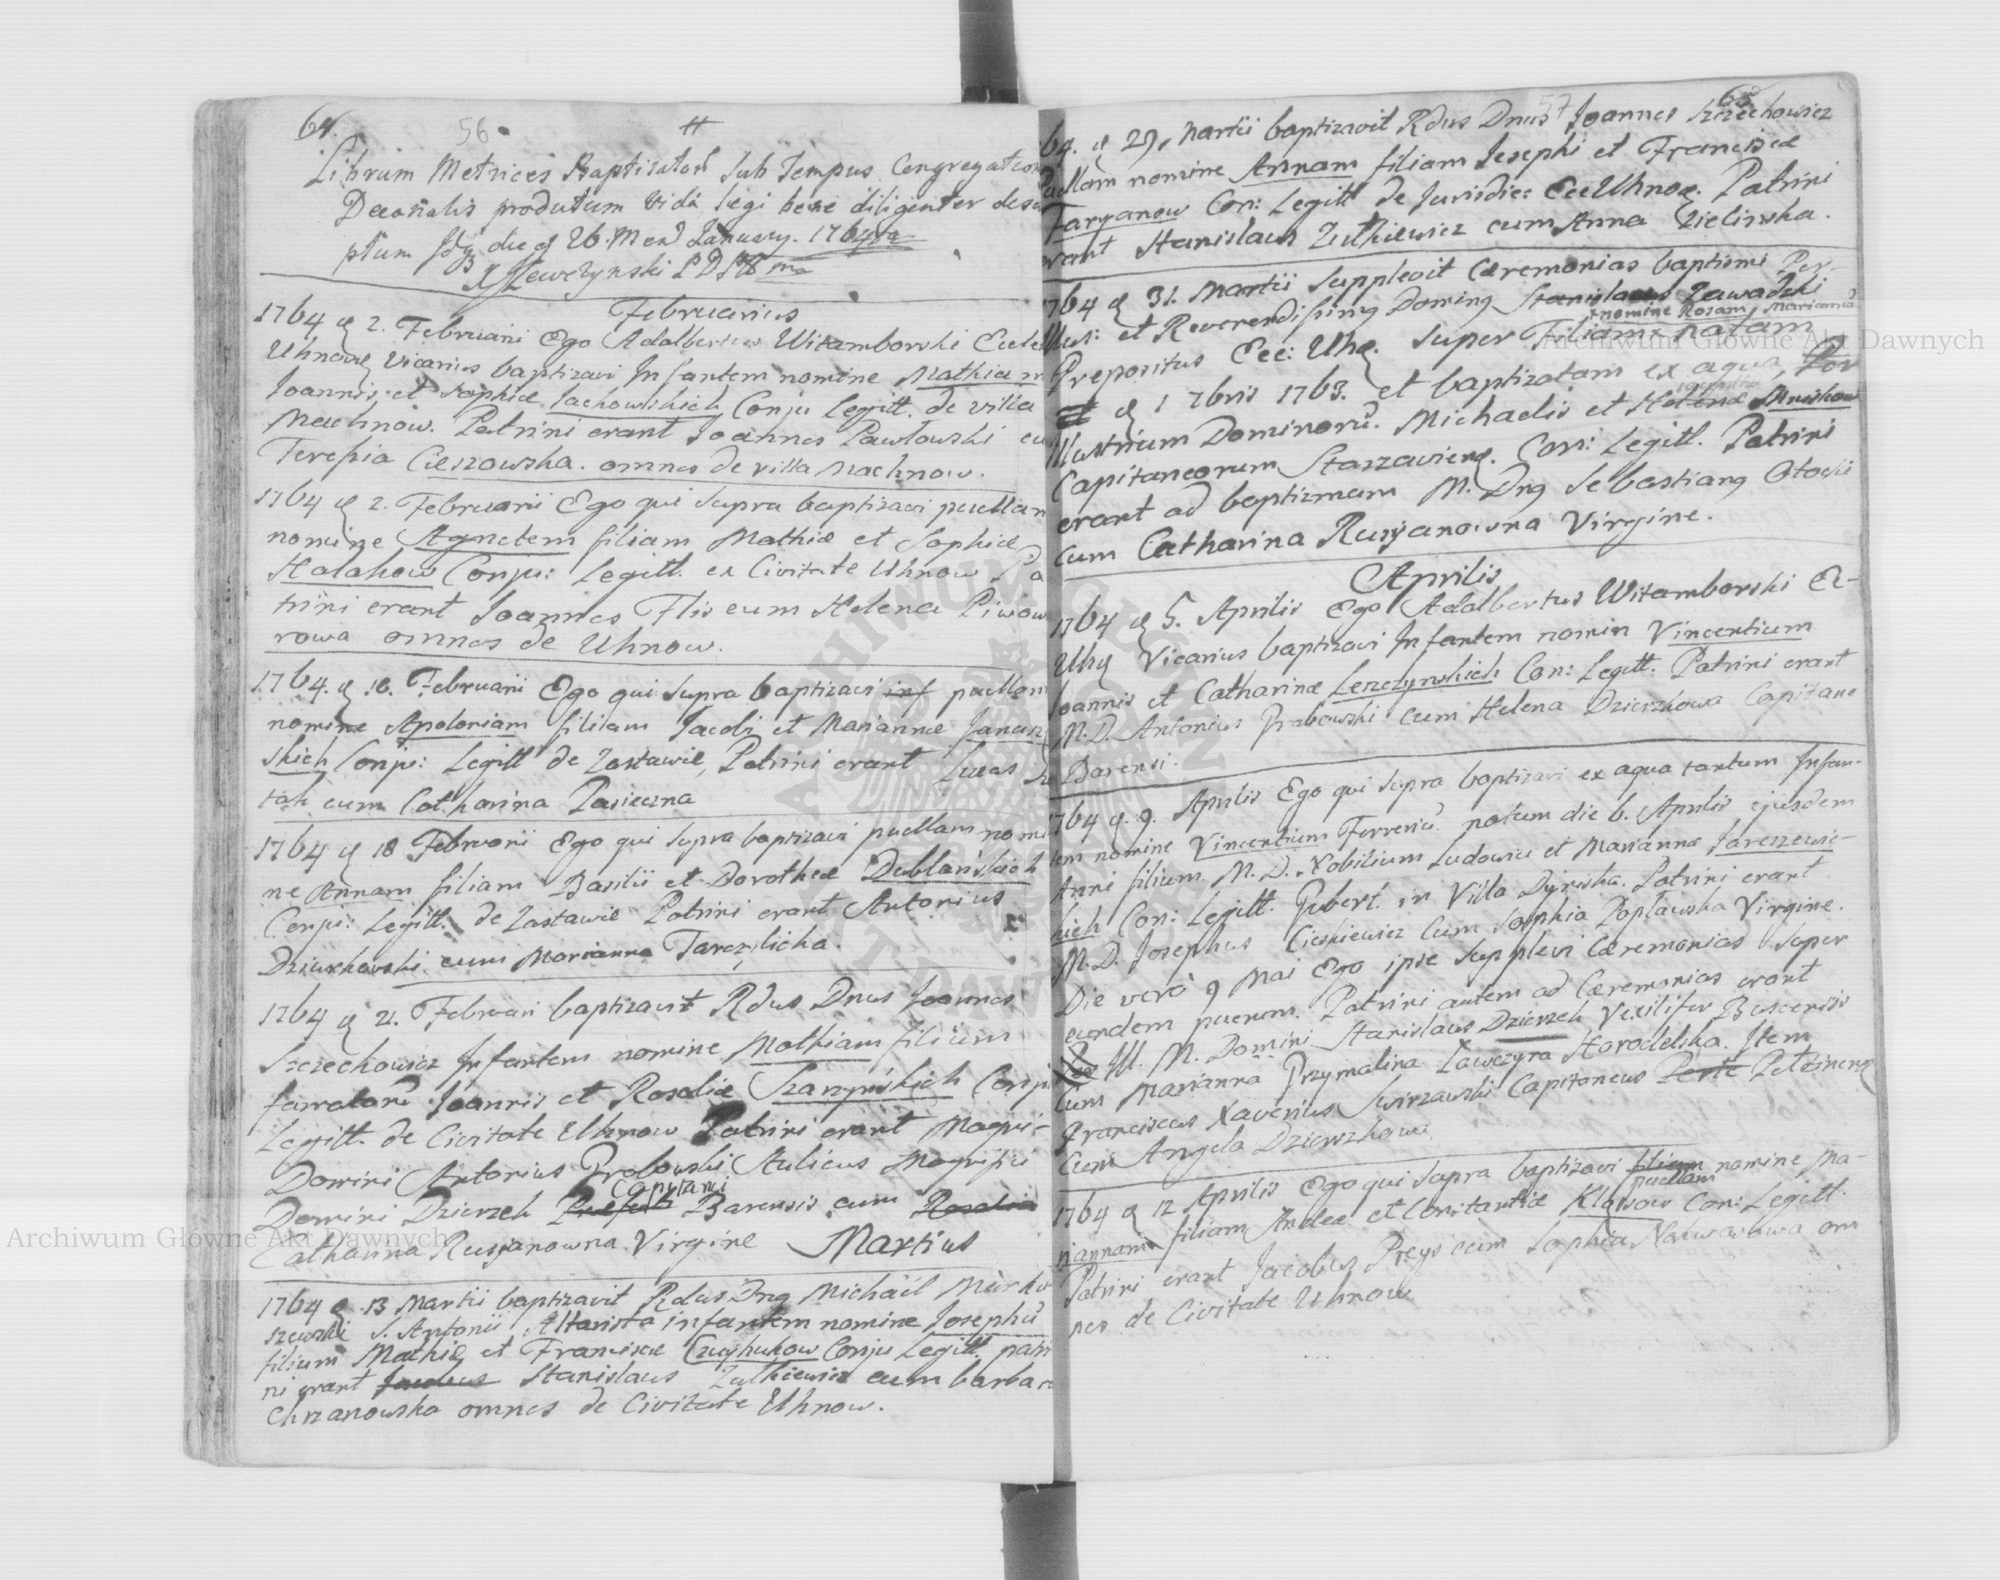 64. 56
#
Librum Metrices Baptisator Sub Tempus Congregation
Decanalis produtum vidi legi bene diligenter descri
ptum die 26. Men January. 1764
Februarius
1764 d 2. Februarii Ego Adalbertus Witamborski Eccles
Uhnov Vicarius baptizavi Infantem nomine Mathiam
Joannis et Sophiæ Lachowskich Conju Legitt. de villa
Machnow. Patrini erant Joannes Pawłowski cum
Teresia Cieszowska. omnes de villa Machnow.
1764 d 2. Februarii Ego qui supra baptizavi puellam
nomine Agnetem filiam Mathiæ et Sophiæ
Halahow Conju: Legitt. ex Civitate Uhnow Pa
trini erant Joannes Flis cum Helena Piwow
rowa omnes de Uhnow.
1764. d 16. Februarii Ego qui supra baptizavi inf puellam
nomine Apoloniam filiam Jacobi et Mariannæ Janusz
skich Conju: Legitt de Zastawie, Patrini erant Lucas
tah cum Catharina Pasieczna
1764 d 18 Februarii Ego qui supra baptizavi puellam nomi
ne Annam filiam Basilii et Dorotheæ Dublańskich
Conju: Legitt. de Zastawie Patrini erant Antonius
Dziurkowski cum Marianna Tarczylicha.
1764 d 21. Februari baptizavit Rdus Dnus Joannes
Szczechowicz Infantem nomine Mathiam filium
famatorū Joannis et Rosaliæ Szaryńskich Conju
Legitt. de Civitate Uhnow Patrini erant Magni-
Domini Antonius Grabowski Aulicus Magnifici
Capitanei
Domini Dzierzek Præfect Barensis cum Rosalia
Catharina Rusyanowna Virgine Martius
1764 d 13 Martii baptizavit Rdus Dng Michaël Marku
szewski S. Antonii Altarista infantem nomine Josephū
filium Mathiæ et Franciscæ Czuyhukow Conju Legitt. patri
ni erant Stanislaus Zulkiewicz cum barbara
Chrzanowska omnes de Civitate Uhnow.
57 65
64. d 29. Martii baptizavit Rdus Dnus Joannes Szczechowicz
Puellam nomine Annam filiam Josephi et Franciscæ
Taryanow Con: Legitt de Jurisdic: Ecc Uhnov. Patrini
erant Stanislaus Zulkiewicz cum Anna Zielinska.
1764 d 31. Martii Supplevit Cæremonias baptismi Per-
Illus: et Reverendissimg Doming Stanislaus Zawadzki
nomine Rosam, Mariannā
Prepositus Ecc: Uhn. super Filiam natam
d 1 7bris 1763. et baptizatam ex aqua
Illustrium Dominorū. Michaelis et Helenæ Mniskow
Capitaneorum Starzaviens. Con: Legitt. Patrini
erant ad baptismam M. Dng Sebastiang Otocki
cum Catharina Rusyanowna Virgine.
Aprilis
1764 d 5. Aprilis Ego Adalbertus Witamborski Ec-
Uhn Vicarius baptizavi Infantem nomin Vincentium
Joannis et Catharinæ Leszczynskich Con: Legitt. Patrini erant
M. D. Antonius Grabowski cum Helena Dzierzkowa Capitane
Barensi.
1764 d. 9. Aprilis Ego qui supra baptizavi ex aqua tantum Infan-
tem nomine Vincentium Ferreriū natum die 6. Aprilis ejusdem
Anni filium M. D. Nobilium Ludovici et Mariannæ Jareszewic-
kich Con: Legitt. Gubert. in Villa Dyniska. Patrini erant
M. D. Josephus Cieskiewicz Cum Sophia Poplawska Virgine.
Die verò 9 Mai Ego ipse supplevi Cæremonias super
eundem puerum. Patrini autem ad Cæremonias erant
Ill. M. Domini Stanislaus Dzierzek Vexilifer Buscensis
Cum Marianna Przymalina Lawczyna Horodelska. Item
Franciscus Xaverius Swirzawski Capitaneus
Cum Angela Dzierzkowa
1764 d 12 Aprilis Ego qui supra baptizavi filium nomine Ma-
puellam
riannam filiam Andreæ et Constantiæ Klosow Con: Legitt.
Patrini erant Jacobus Preys cum Sophia om
nes de Civitate Uhnow
Archiwum Główne Akt Dawnych
Archiwum Główne Akt Dawnych